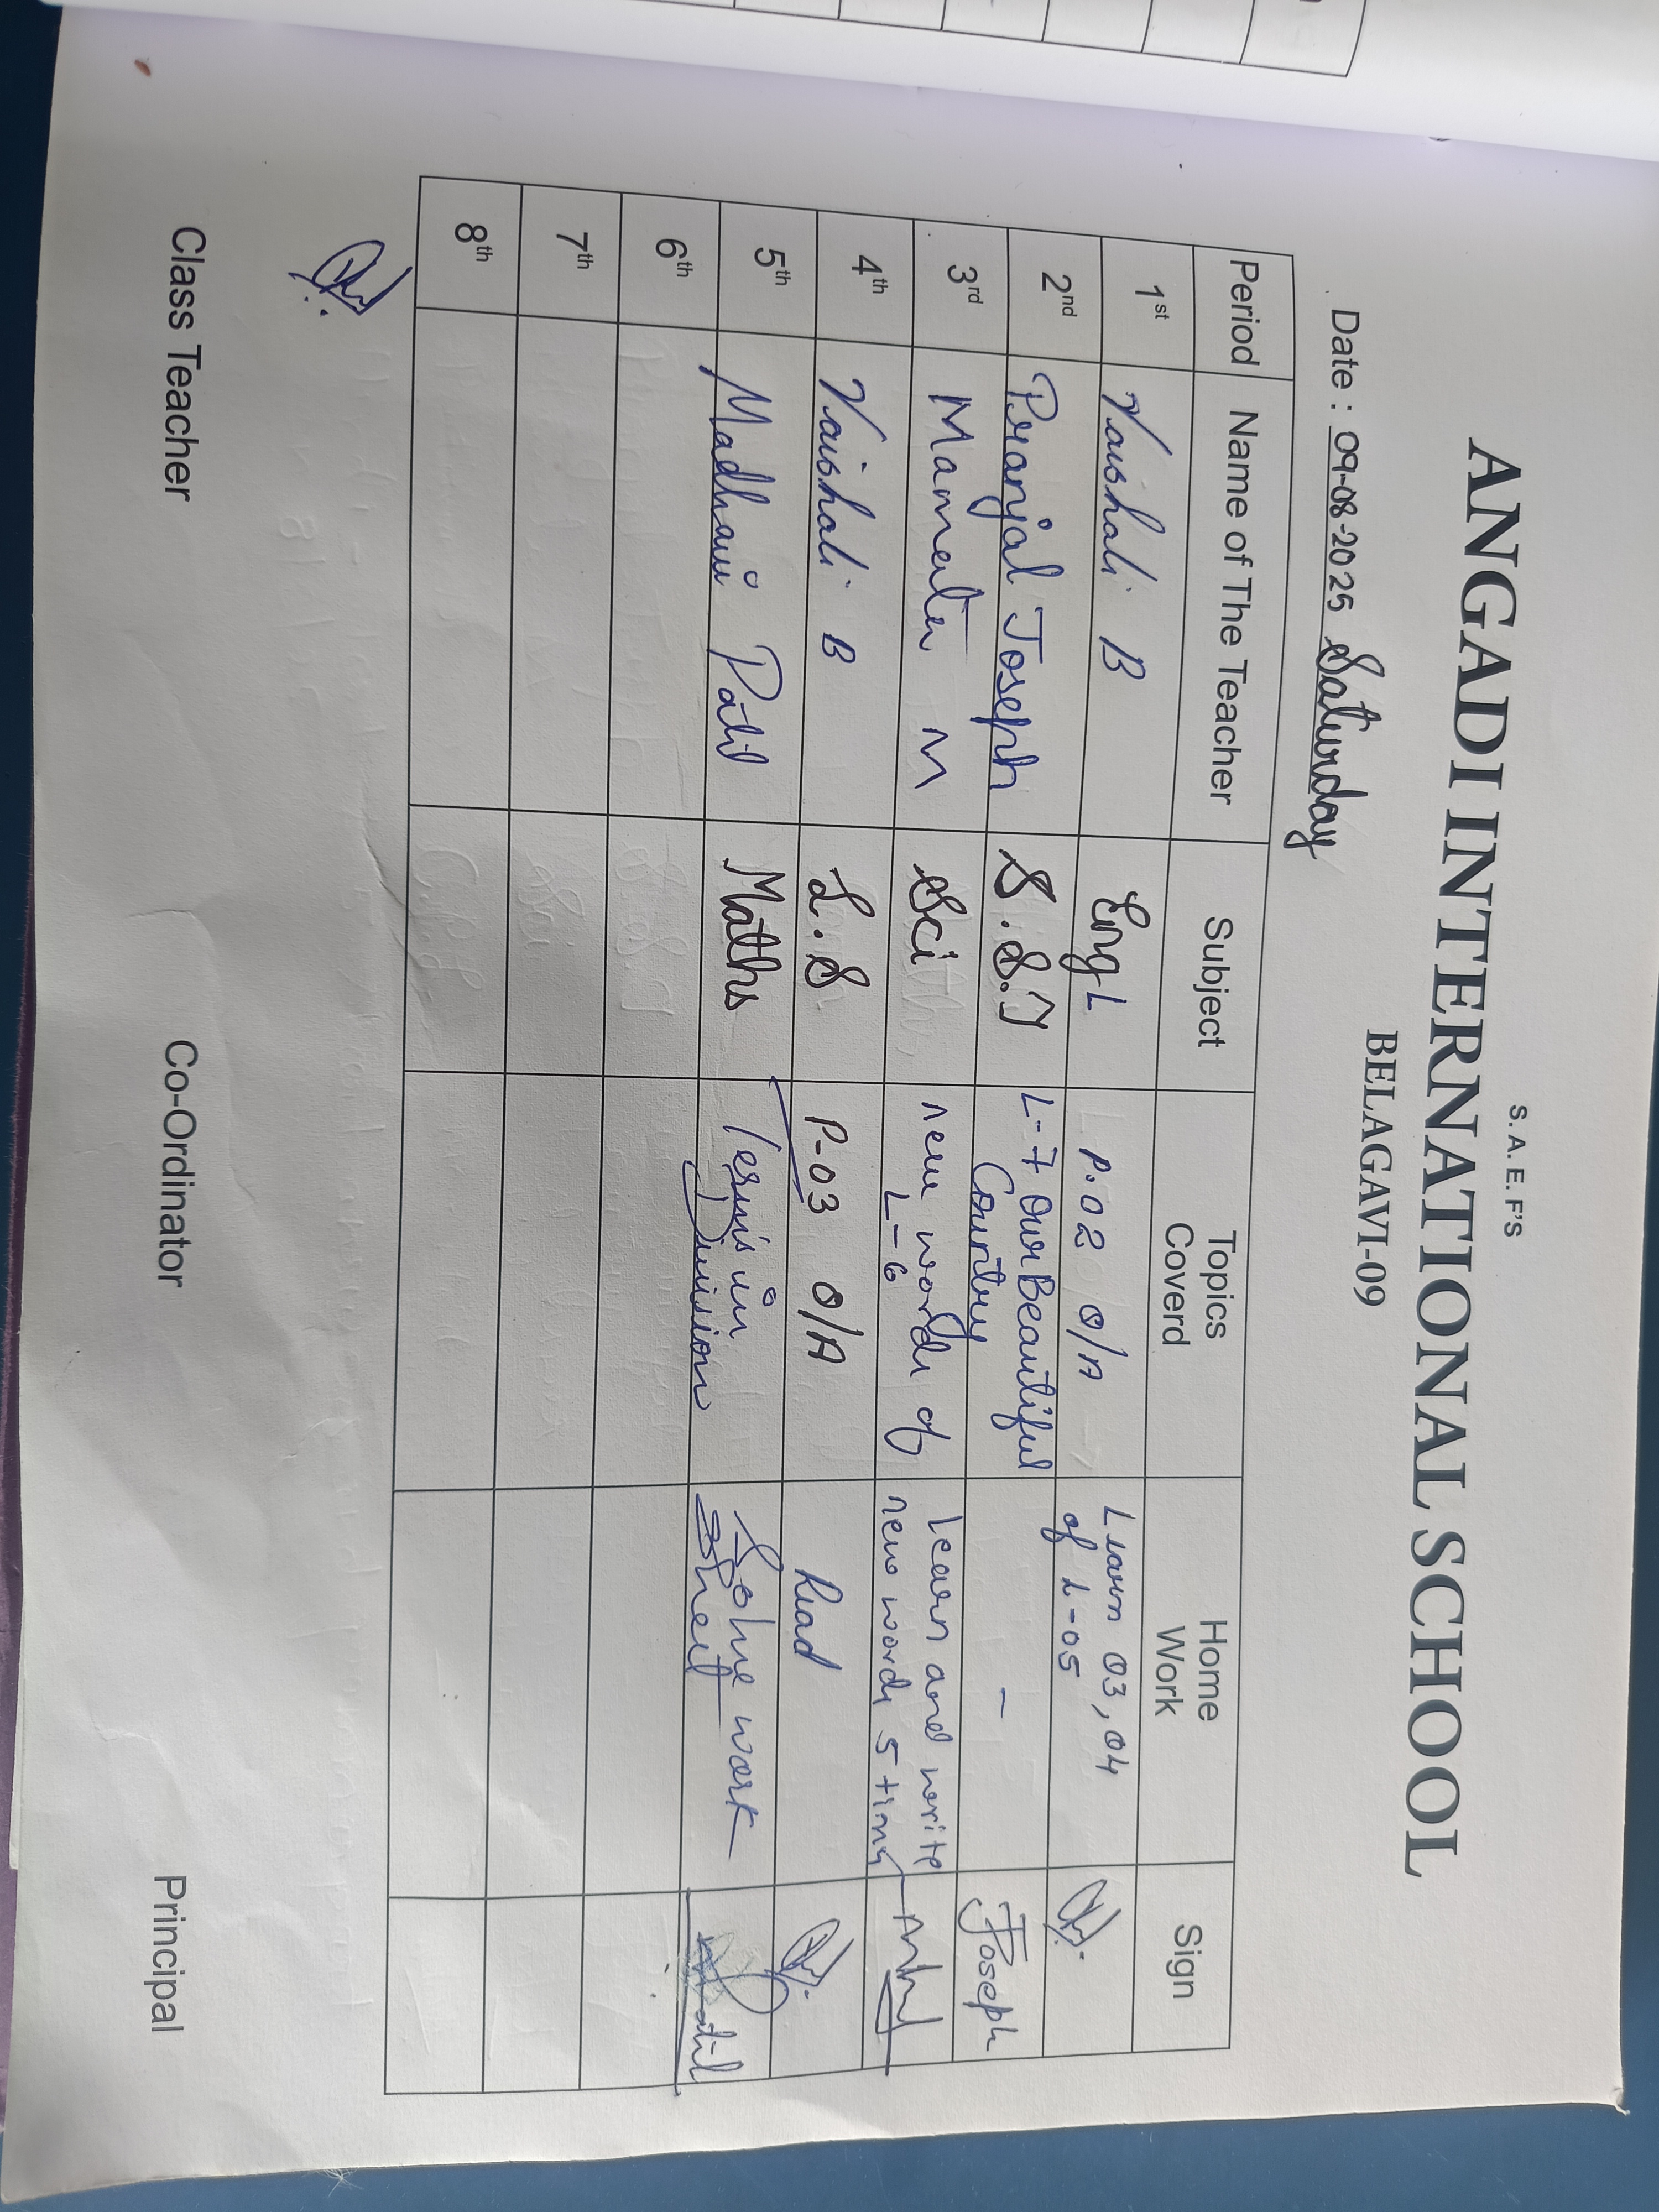 S. A. E. F'S
ANGADI INTERNATIONAL SCHOOL
BELAGAVI-09
Date : 09-08-2025 Saturday
Period Name of The Teacher Subject Topics Coverd Home Work Sign
1st Vaishali B Eng L P.02 Q/A Learn 03, 04
of L-05
2nd Pranjal Joseph S.S.T L-7 Our Beautiful
Country - Joseph
3rd Mamata M Sci new words of learn and write
L-6 new words 5 times
4th Vaishali B L.S P-03 Q/A Read
5th Madhavi Patil Maths Terms in Solve work
Division Sheet Patil
6th
7th
8th
Class Teacher Co-Ordinator Principal